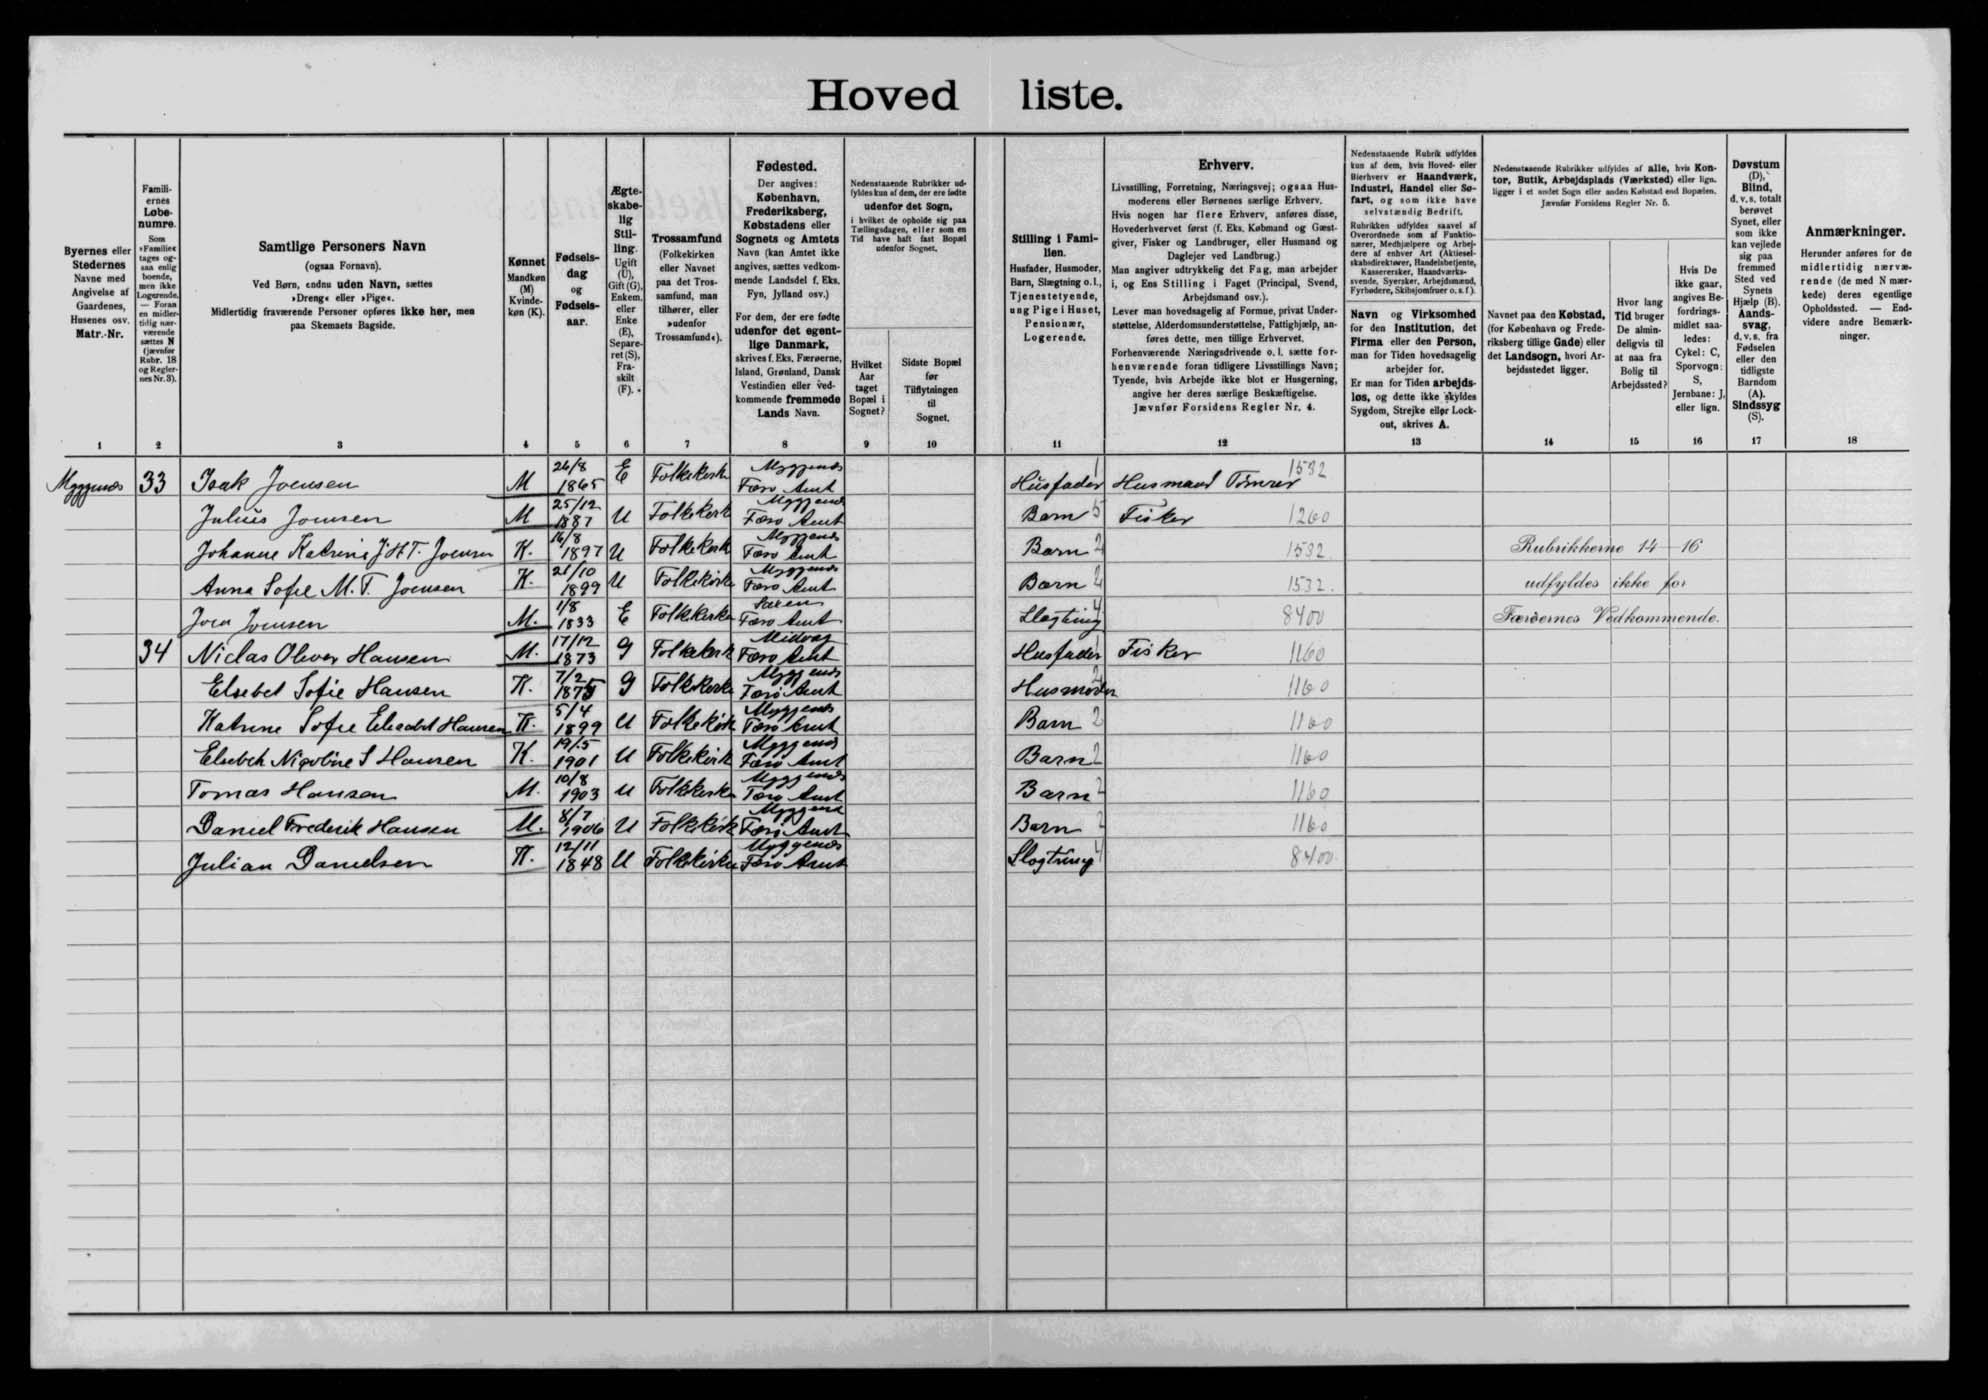 Hoved liste.
Byernes eller Stedernes Navne med Angivelse af Gaardenes, Husenes osv. Matr.-Nr.
Familiernes Løbenumre. Som »Familie« tages ogsaa enlig boende, men ikke Logerende. — Foran en midlertidig nærværende sættes N (jævnfør Rubr. 18 og Reglernes Nr. 3).
Samtlige Personers Navn
(ogsaa Fornavn).
Ved Børn, endnu uden Navn, sættes
»Dreng« eller »Pige«.
Midlertidig fraværende Personer opføres ikke her, men
paa Skemaets Bagside.
Kønnet
Mandkøn (M) Kvindekøn (K).
Fødselsdag og Fødselsaar.
Ægteskabelig Stilling. Ugift (U), Gift (G), Enkem. eller Enke (E), Separeret (S), Fraskilt (F).
Trossamfund
(Folkekirken eller Navnet paa det Trossamfund, man tilhører, eller »udenfor Trossamfund«).
Fødested.
Der angives: København, Frederiksberg, Købstadens eller Sognets og Amtets Navn (kan Amtet ikke angives, sættes vedkommende Landsdel f. Eks. Fyn, Jylland osv.)
For dem, der ere fødte udenfor det egentlige Danmark, skrives f. Eks. Færøerne, Island, Grønland, Dansk Vestindien eller vedkommende fremmede Lands Navn.
Nedenstaaende Rubrikker udfyldes kun af dem, der ere fødte udenfor det Sogn, i hvilket de opholde sig paa Tællingsdagen, eller som en Tid have haft fast Bopæl udenfor Sognet.
Hvilket Aar taget Bopæl i Sognet?
Sidste Bopæl før Tilflytningen til Sognet.
Stilling i Familien.
Husfader, Husmoder, Barn, Slægtning o. l., Tjenestetyende, ung Pige i Huset, Pensionær, Logerende.
Erhverv.
Livsstilling, Forretning, Næringsvej; ogsaa Husmoderens eller Børnenes særlige Erhverv.
Hvis nogen har flere Erhverv, anføres disse, Hovederhvervet først (f. Eks. Købmand og Gæstgiver, Fisker og Landbruger, eller Husmand og Daglejer ved Landbrug.)
Man angiver udtrykkelig det Fag, man arbejder i, og Ens Stilling i Faget (Principal, Svend, Arbejdsmand osv.).
Lever man hovedsagelig af Formue, privat Understøttelse, Alderdomsunderstøttelse, Fattighjælp, anføres dette, men tillige Erhvervet.
Forhenværende Næringsdrivende o. l. sætte forhenværende foran tidligere Livsstillings Navn; Tyende, hvis Arbejde ikke blot er Husgerning, angive her deres særlige Beskæftigelse.
Jævnfør Forsidens Regler Nr. 4.
Nedenstaaende Rubrik udfyldes kun af dem, hvis Hoved- eller Bierhverv er Haandværk, Industri, Handel eller Søfart, og som ikke have selvstændig Bedrift.
Rubrikken udfyldes saavel af Overordnede som af Funktionærer, Medhjælpere og Arbejdere af enhver Art (Aktieselskabsdirektører, Handelsbetjente, Kasserersker, Haandværkssvende, Syersker, Arbejdsmænd, Fyrbødere, Skibsjomfruer o. s. f.).
Navn og Virksomhed for den Institution, det Firma eller den Person, man for Tiden hovedsagelig arbejder for.
Er man for Tiden arbejdsløs, og dette ikke skyldes Sygdom, Strejke eller Lockout, skrives A.
Nedenstaaende Rubrikker udfyldes af alle, hvis Kontor, Butik, Arbejdsplads (Værksted) eller lign. ligger i et andet Sogn eller anden Købstad end Bopælen.
Jævnfør Forsidens Regler Nr. 5.
Navnet paa den Købstad, (for København og Frederiksberg tillige Gade) eller det Landsogn, hvori Arbejdsstedet ligger.
Hvor lang Tid bruger De almindeligvis til at naa fra Bolig til Arbejdssted?
Hvis De ikke gaar, angives Befordringsmidlet saaledes: Cykel: C, Sporvogn: S, Jernbane: J, eller lign.
Døvstum (D), Blind, d. v. s. totalt berøvet Synet, eller som ikke kan vejlede sig paa fremmed Sted ved Synets Hjælp (B). Aandssvag, d. v. s. fra Fødselen eller den tidligste Barndom (A). Sindssyg (S).
Anmærkninger.
Herunder anføres for de midlertidig nærværende (de med N mærkede) deres egentlige Opholdssted. — Endvidere andre Bemærkninger.
1 2 3 4 5 6 7 8 9 10 11 12 13 14 15 16 17 18
Myggenæs 33 Isak Joensen M 26/8 1865 E Folkekirke Myggenæs Færø Amt Husfader 1 Husmand Tömrer 1532
Julius Joensen M 25/12 1887 U Folkekirke Myggenæs Færø Amt Barn 5 Fisker 1260
Johanne Katrine J H T. Joensen K. 16/8 1897 U Folkekirke Myggenæs Færø Amt Barn 2 1532. Rubrikkerne 14—16
Anna Sofie M. T. Joensen K. 21/10 1899 U Folkekirke Myggenæs Færø Amt Barn 2 1532. udfyldes ikke for
Joen Joensen M. 1/8 1833 E Folkekirke Færø Amt Slægtning 4 8400 Færøernes Vedkommende.
34 Niclas Oliver Hansen M. 17/12 1873 G Folkekirke Midvag Færø Amt Husfader 1 Fisker 1160
Elsebet Sofie Hansen K. 7/2 1875 G Folkekirke Myggenæs Færø Amt Husmoder 2 1160
Katrine Sofie Elsebet Hansen K. 5/4 1899 U Folkekirke Myggenæs Færø Amt Barn 2 1160
Elsebeth S Hansen K. 19/5 1901 U Folkekirke Myggenæs Færø Amt Barn 2 1160
Tomas Hansen M. 10/8 1903 U Folkekirke Myggenæs Færø Amt Barn 2 1160
Daniel Frederik Hansen M. 8/7 1906 U Folkekirke Myggenæs Færø Amt Barn 2 1160
Julian Danielsen K. 12/11 1848 U Folkekirke Myggenæs Færø Amt Slægtning 4 8400.